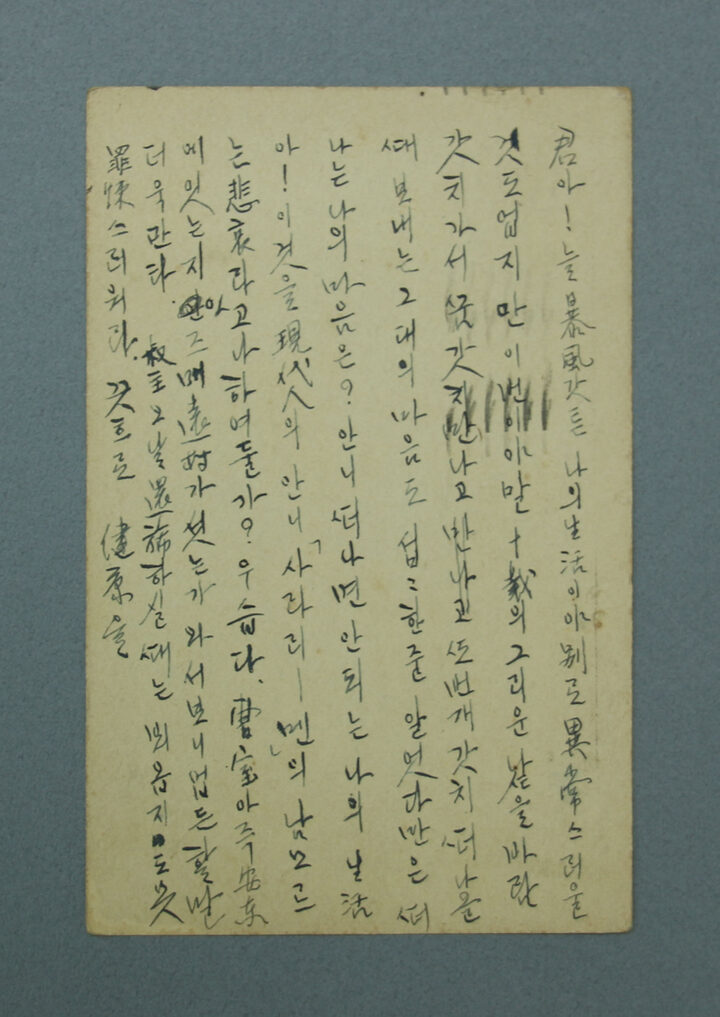 君아! 늘 暴風갓튼 나의 生活이야 別로 異常스러울
것도 업지만 이번이야말 十載의 그리운 낯을 바람
갓치 가서 꿈갓치 만나고 만나고 또 번개갓치 떠나올
때 보내는 그대의 마음도 섭섭한 줄 알엇다만은 떠
나는 나의 마음은? 안니 떠나면 안되는 나의 生活
아! 이것을 現代人의 안니 「사라리ㅡ멘」의 남모르
는 悲哀라고나 하여둘가? 우습다. 아즉 安东
에 잇는지 아즈매 가 셧는가 와서 보니 업든
더욱 만타. 叔主 그날 還 하실 때는 뵈옵지도 못
罪悚스러워라. 끗흐로 健康을